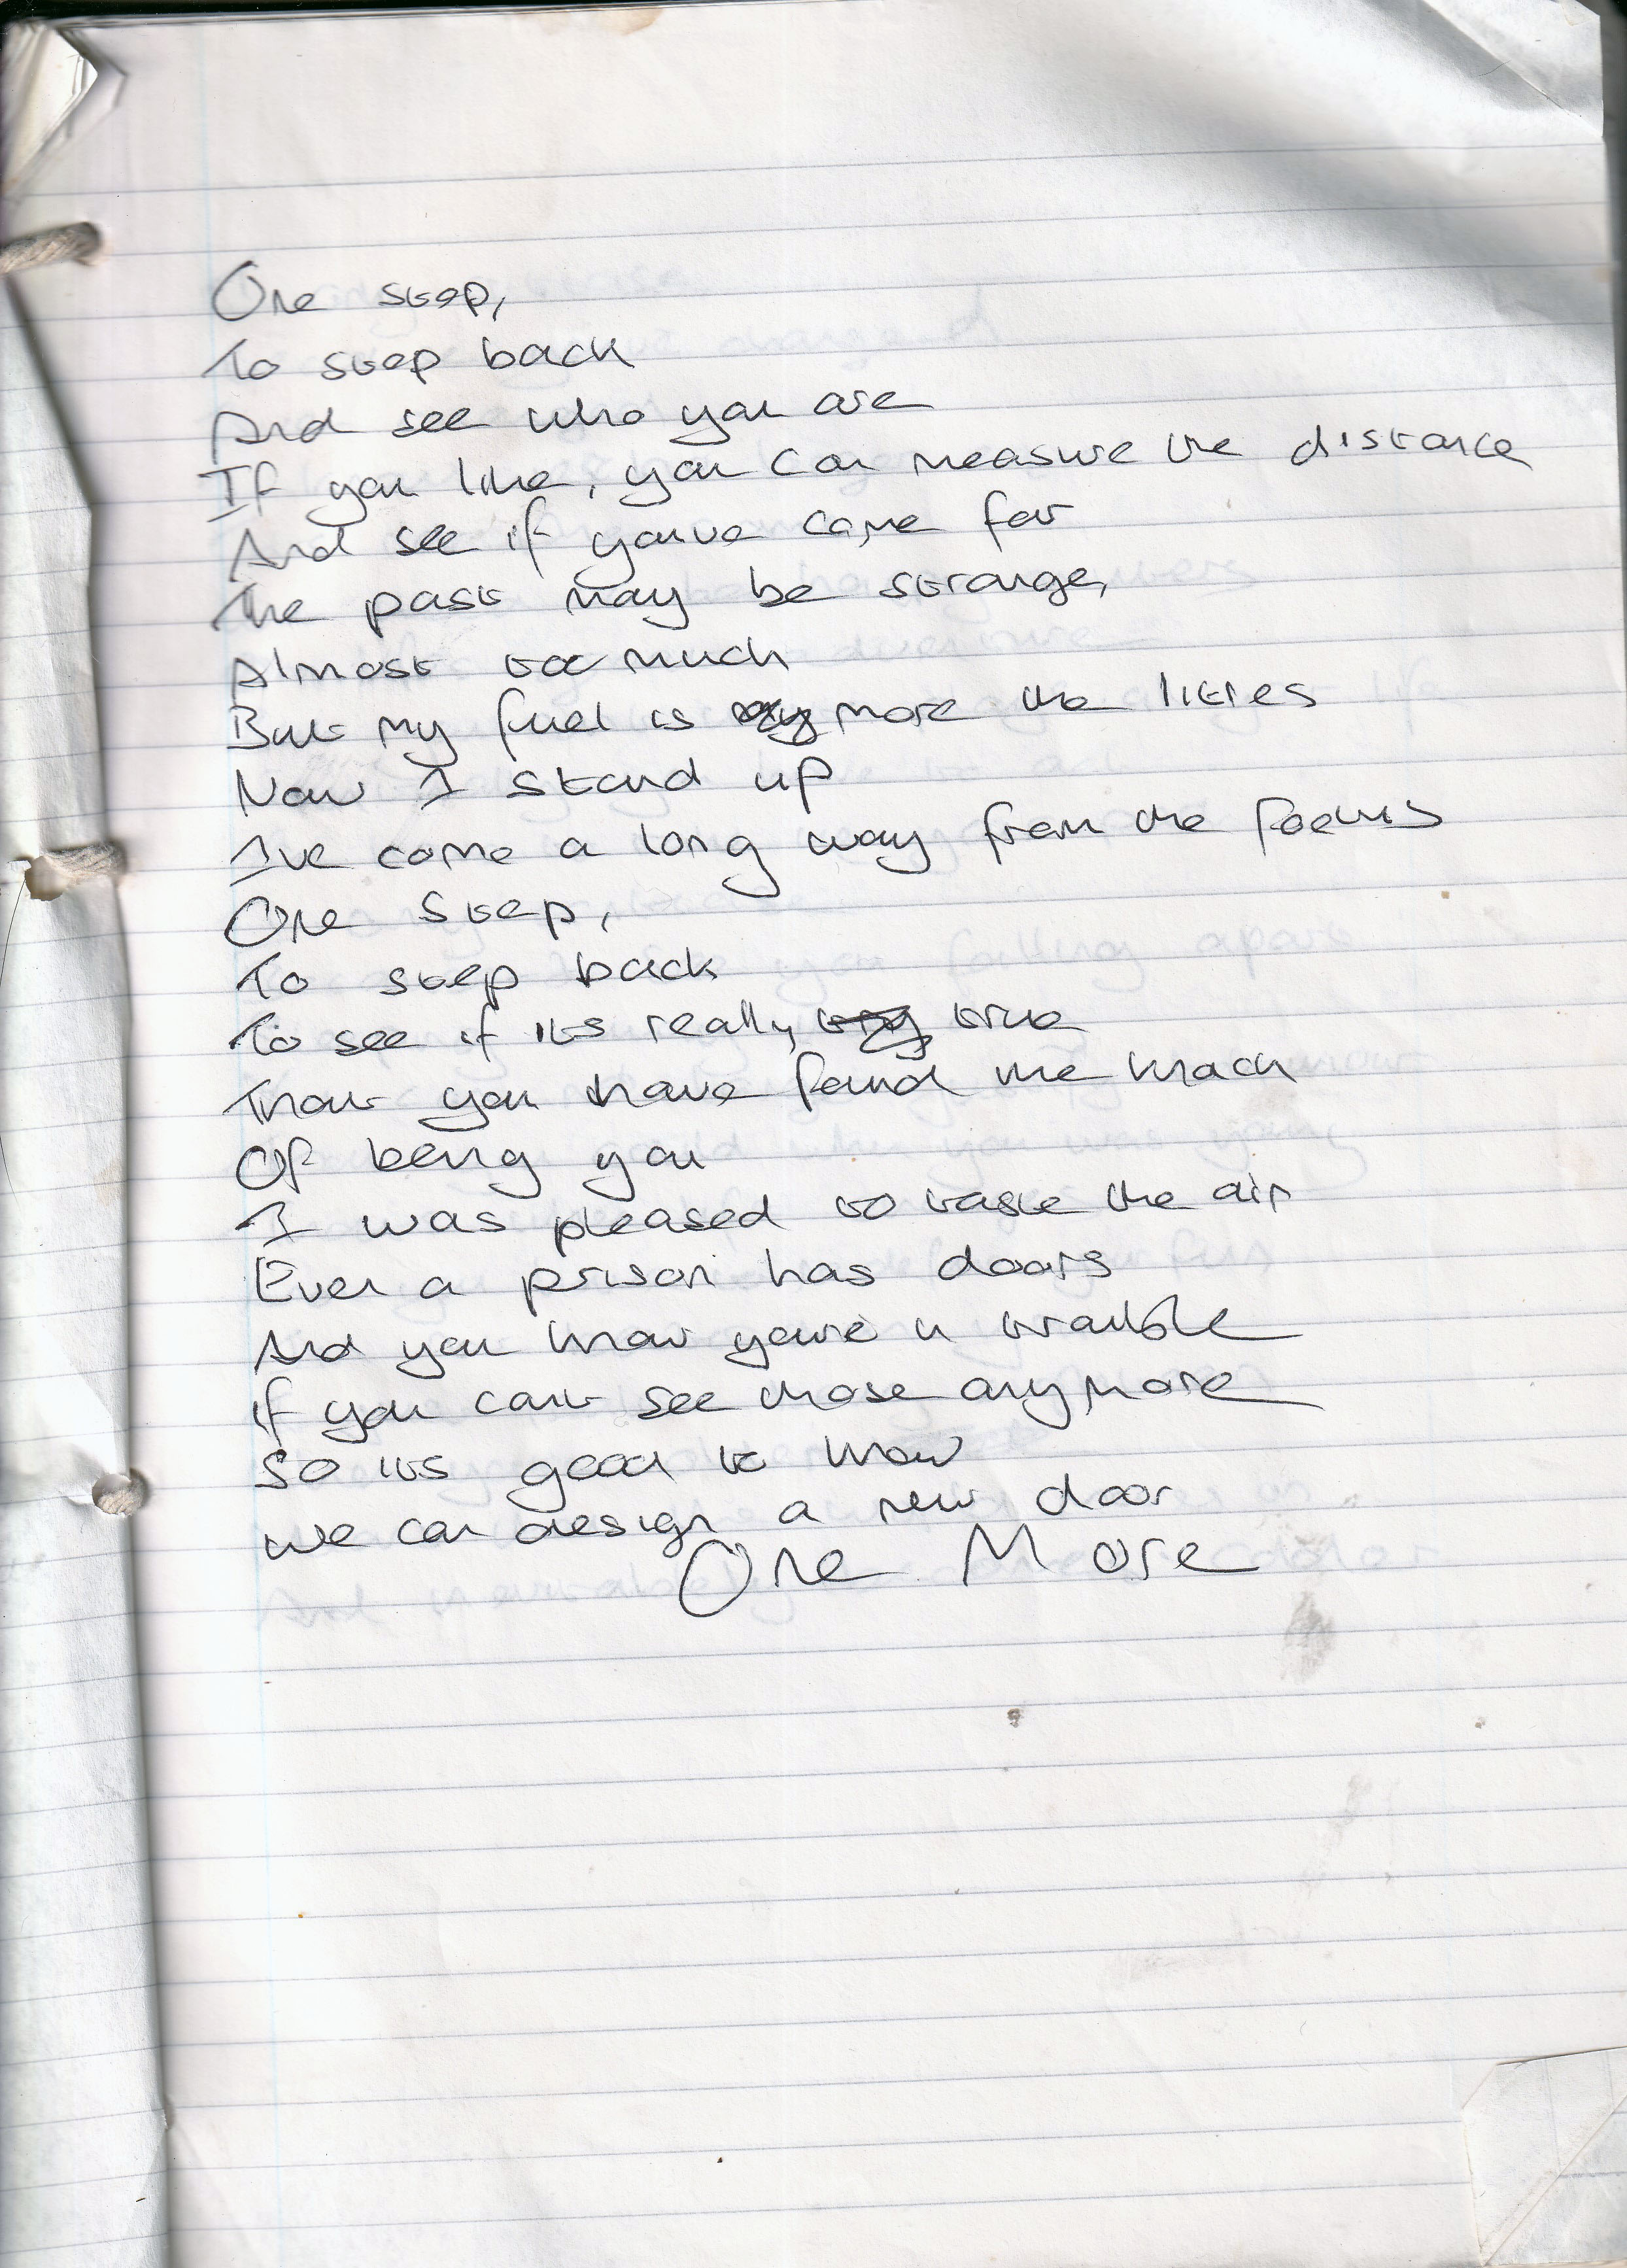 One step,
To step back
And see who you are
If you like, you can measure the distance
And see if youve come far
The past may be strange,
Almost too much
But my fuel is more the litres
Now I stand up
Ive come a long way from the foetus
One step,
To step back
To see if its really true
That you have found the knack
Of being you
I was pleased to taste the air
Even a prison has doors
And you know youre in trouble
if you cant see those anymore
So its good to know
we can design a new door
One More